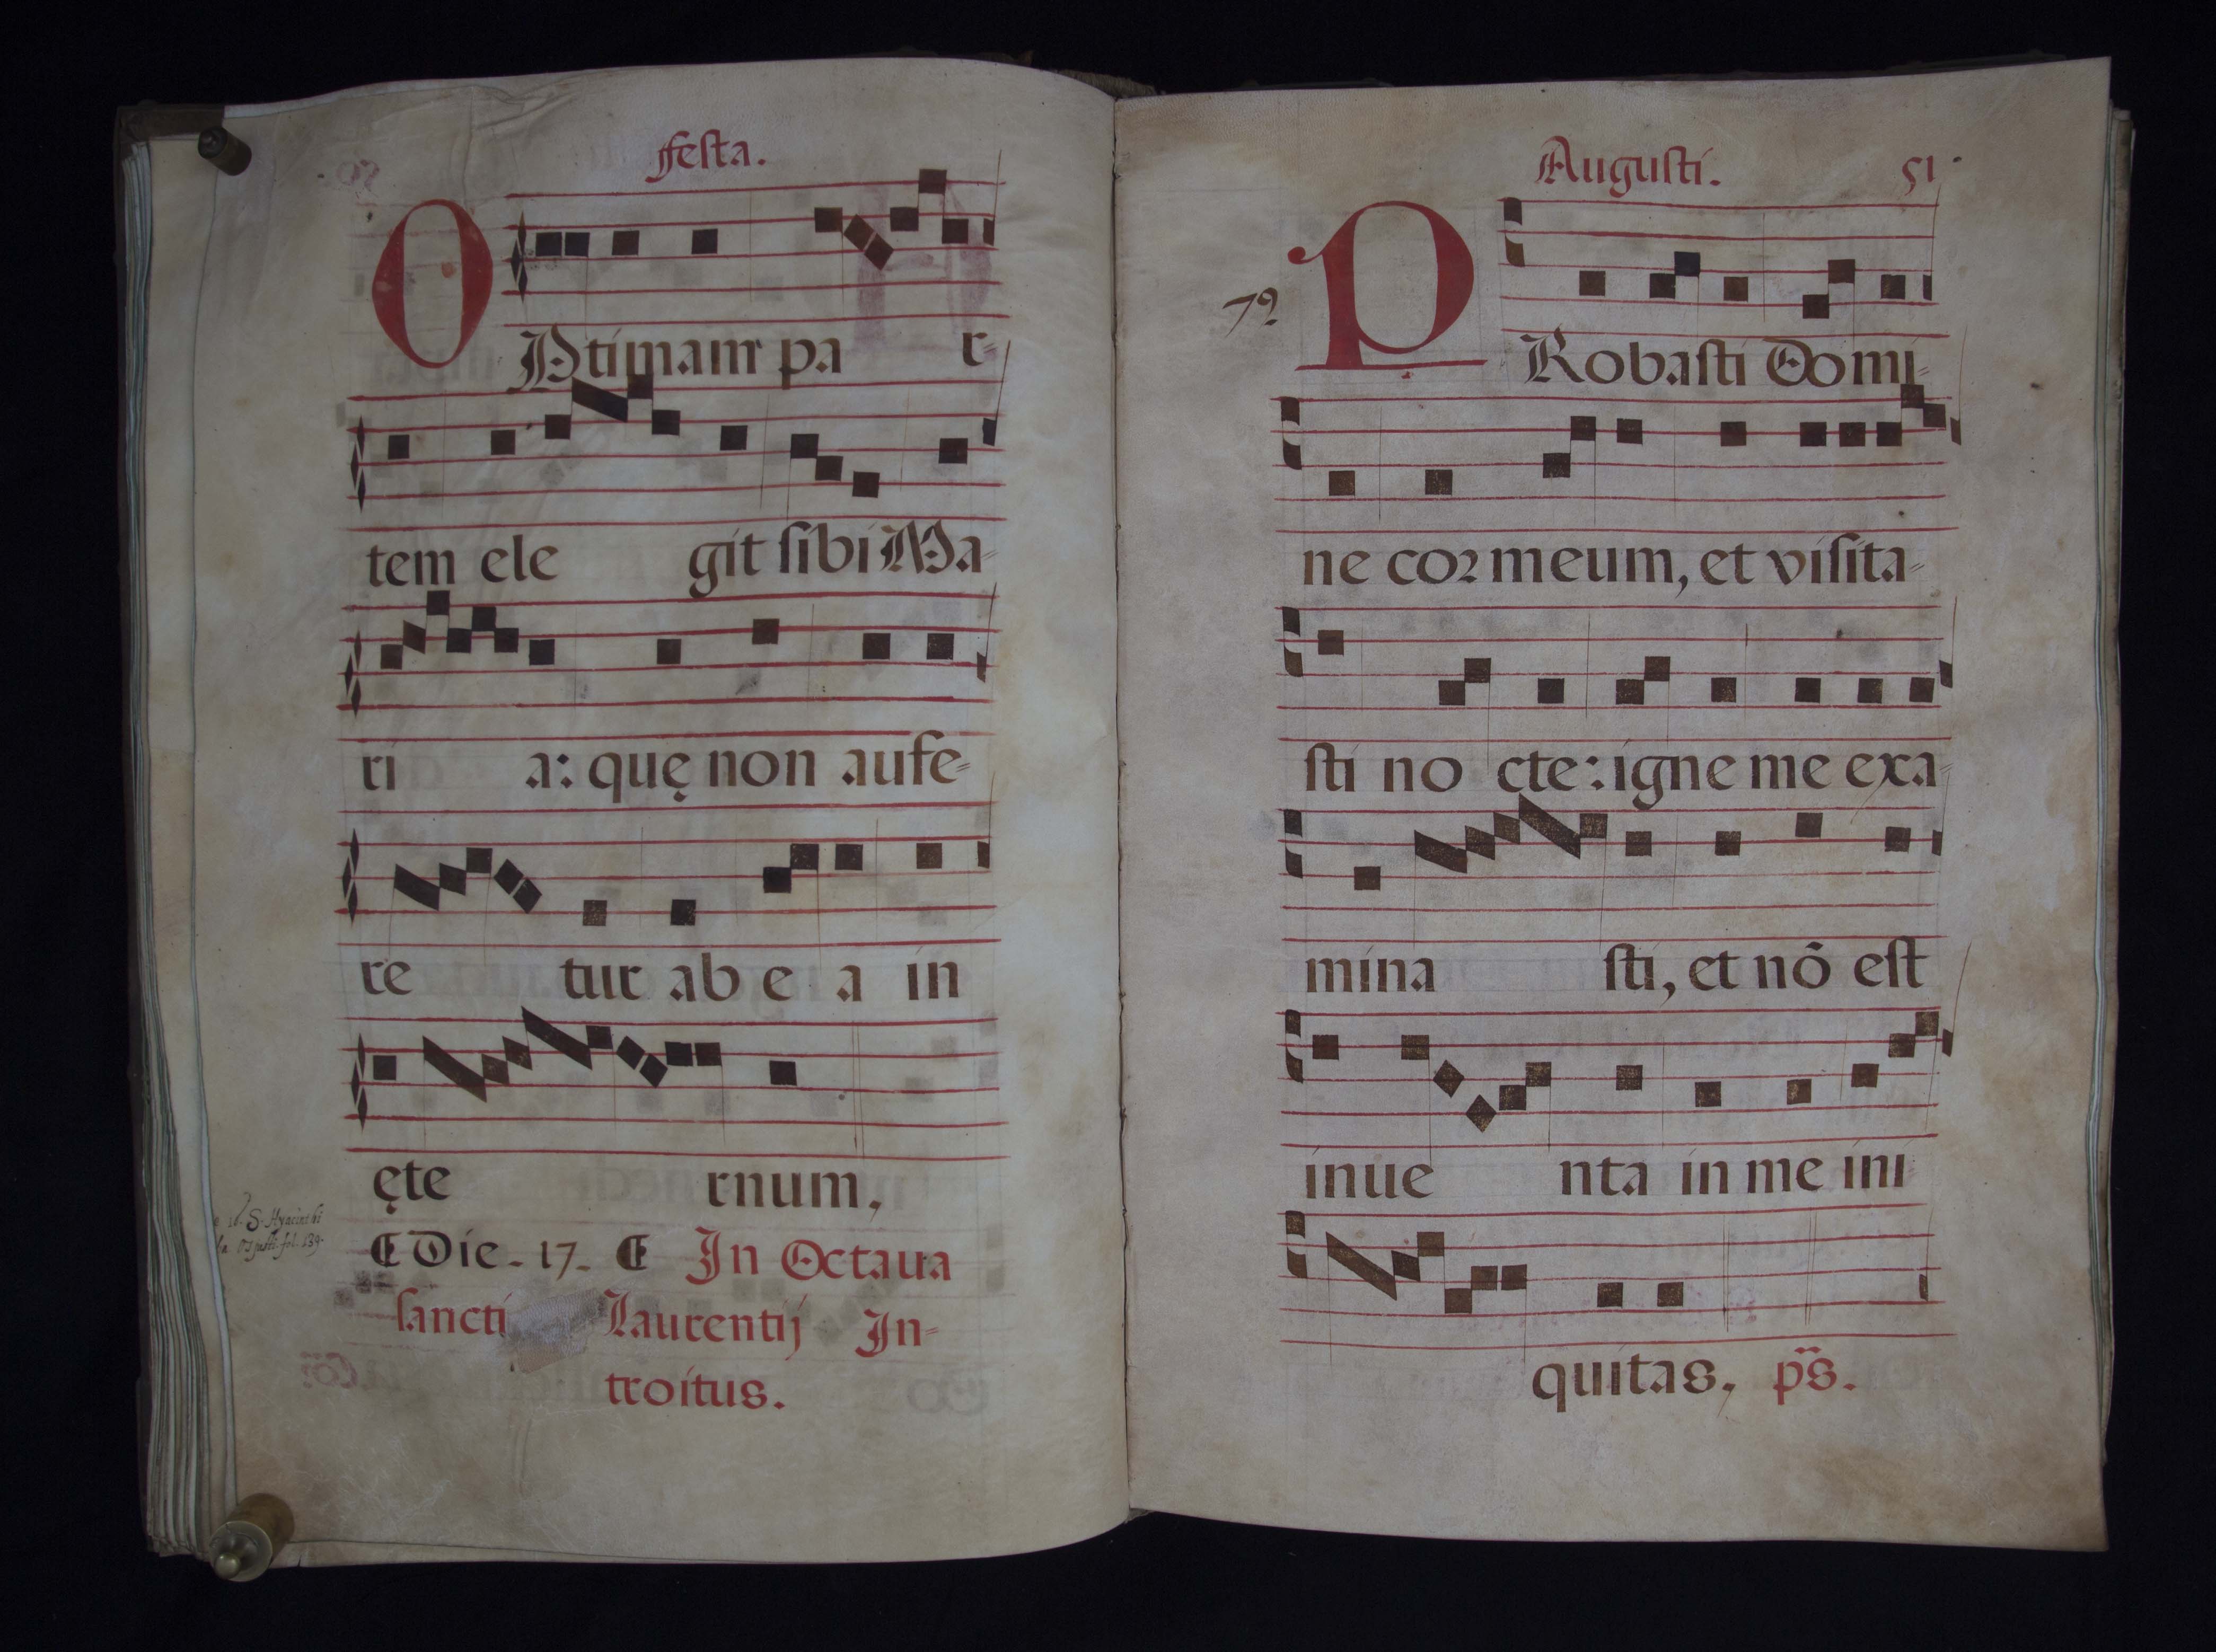 Festa.
OPtimam par-
tem elegit sibi Ma-
ria: quę non aufe-
retur ab ea in
ęternum,
Die. 17. In Octaua
sancti Laurentij In-
troitus.
16. S. Hyacinthi
fol. 139.
Augusti. 51
7º
PRobasti Domi-
ne cor meum, et visita-
sti nocte: igne me exa-
minasti, et nō est
inuenta in me ini
quitas, ps.